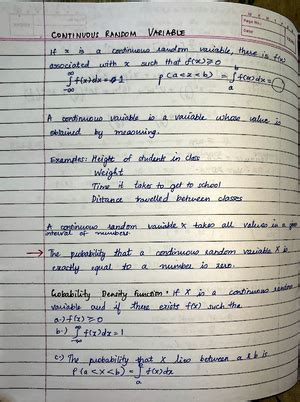 CONTINUOUS RANDOM VARIABLE
If x is a continuous random variable, there is f(x)
associated with x such that f(x) ≥ 0
∫f(x)dx = 1 p(a<x<b) = ∫f(x)dx =
A continuous variable is a variable whose value is
obtained by measuring.
Examples: Height of students in class
Weight
Time it takes to get to school
Distance travelled between classes
A continuous random variable X takes all values in a
interval of numbers.
→ The probability that a continuous random variable X is
exactly equal to a number is zero.
Probability Density Function: If X is a continuous random
variable and if there exists f(x) such the
a.) f(x) ≥ 0
b.) ∫f(x)dx = 1
c.) The probability that X lies between a & b is
P(a<x<b) = ∫f(x)dx